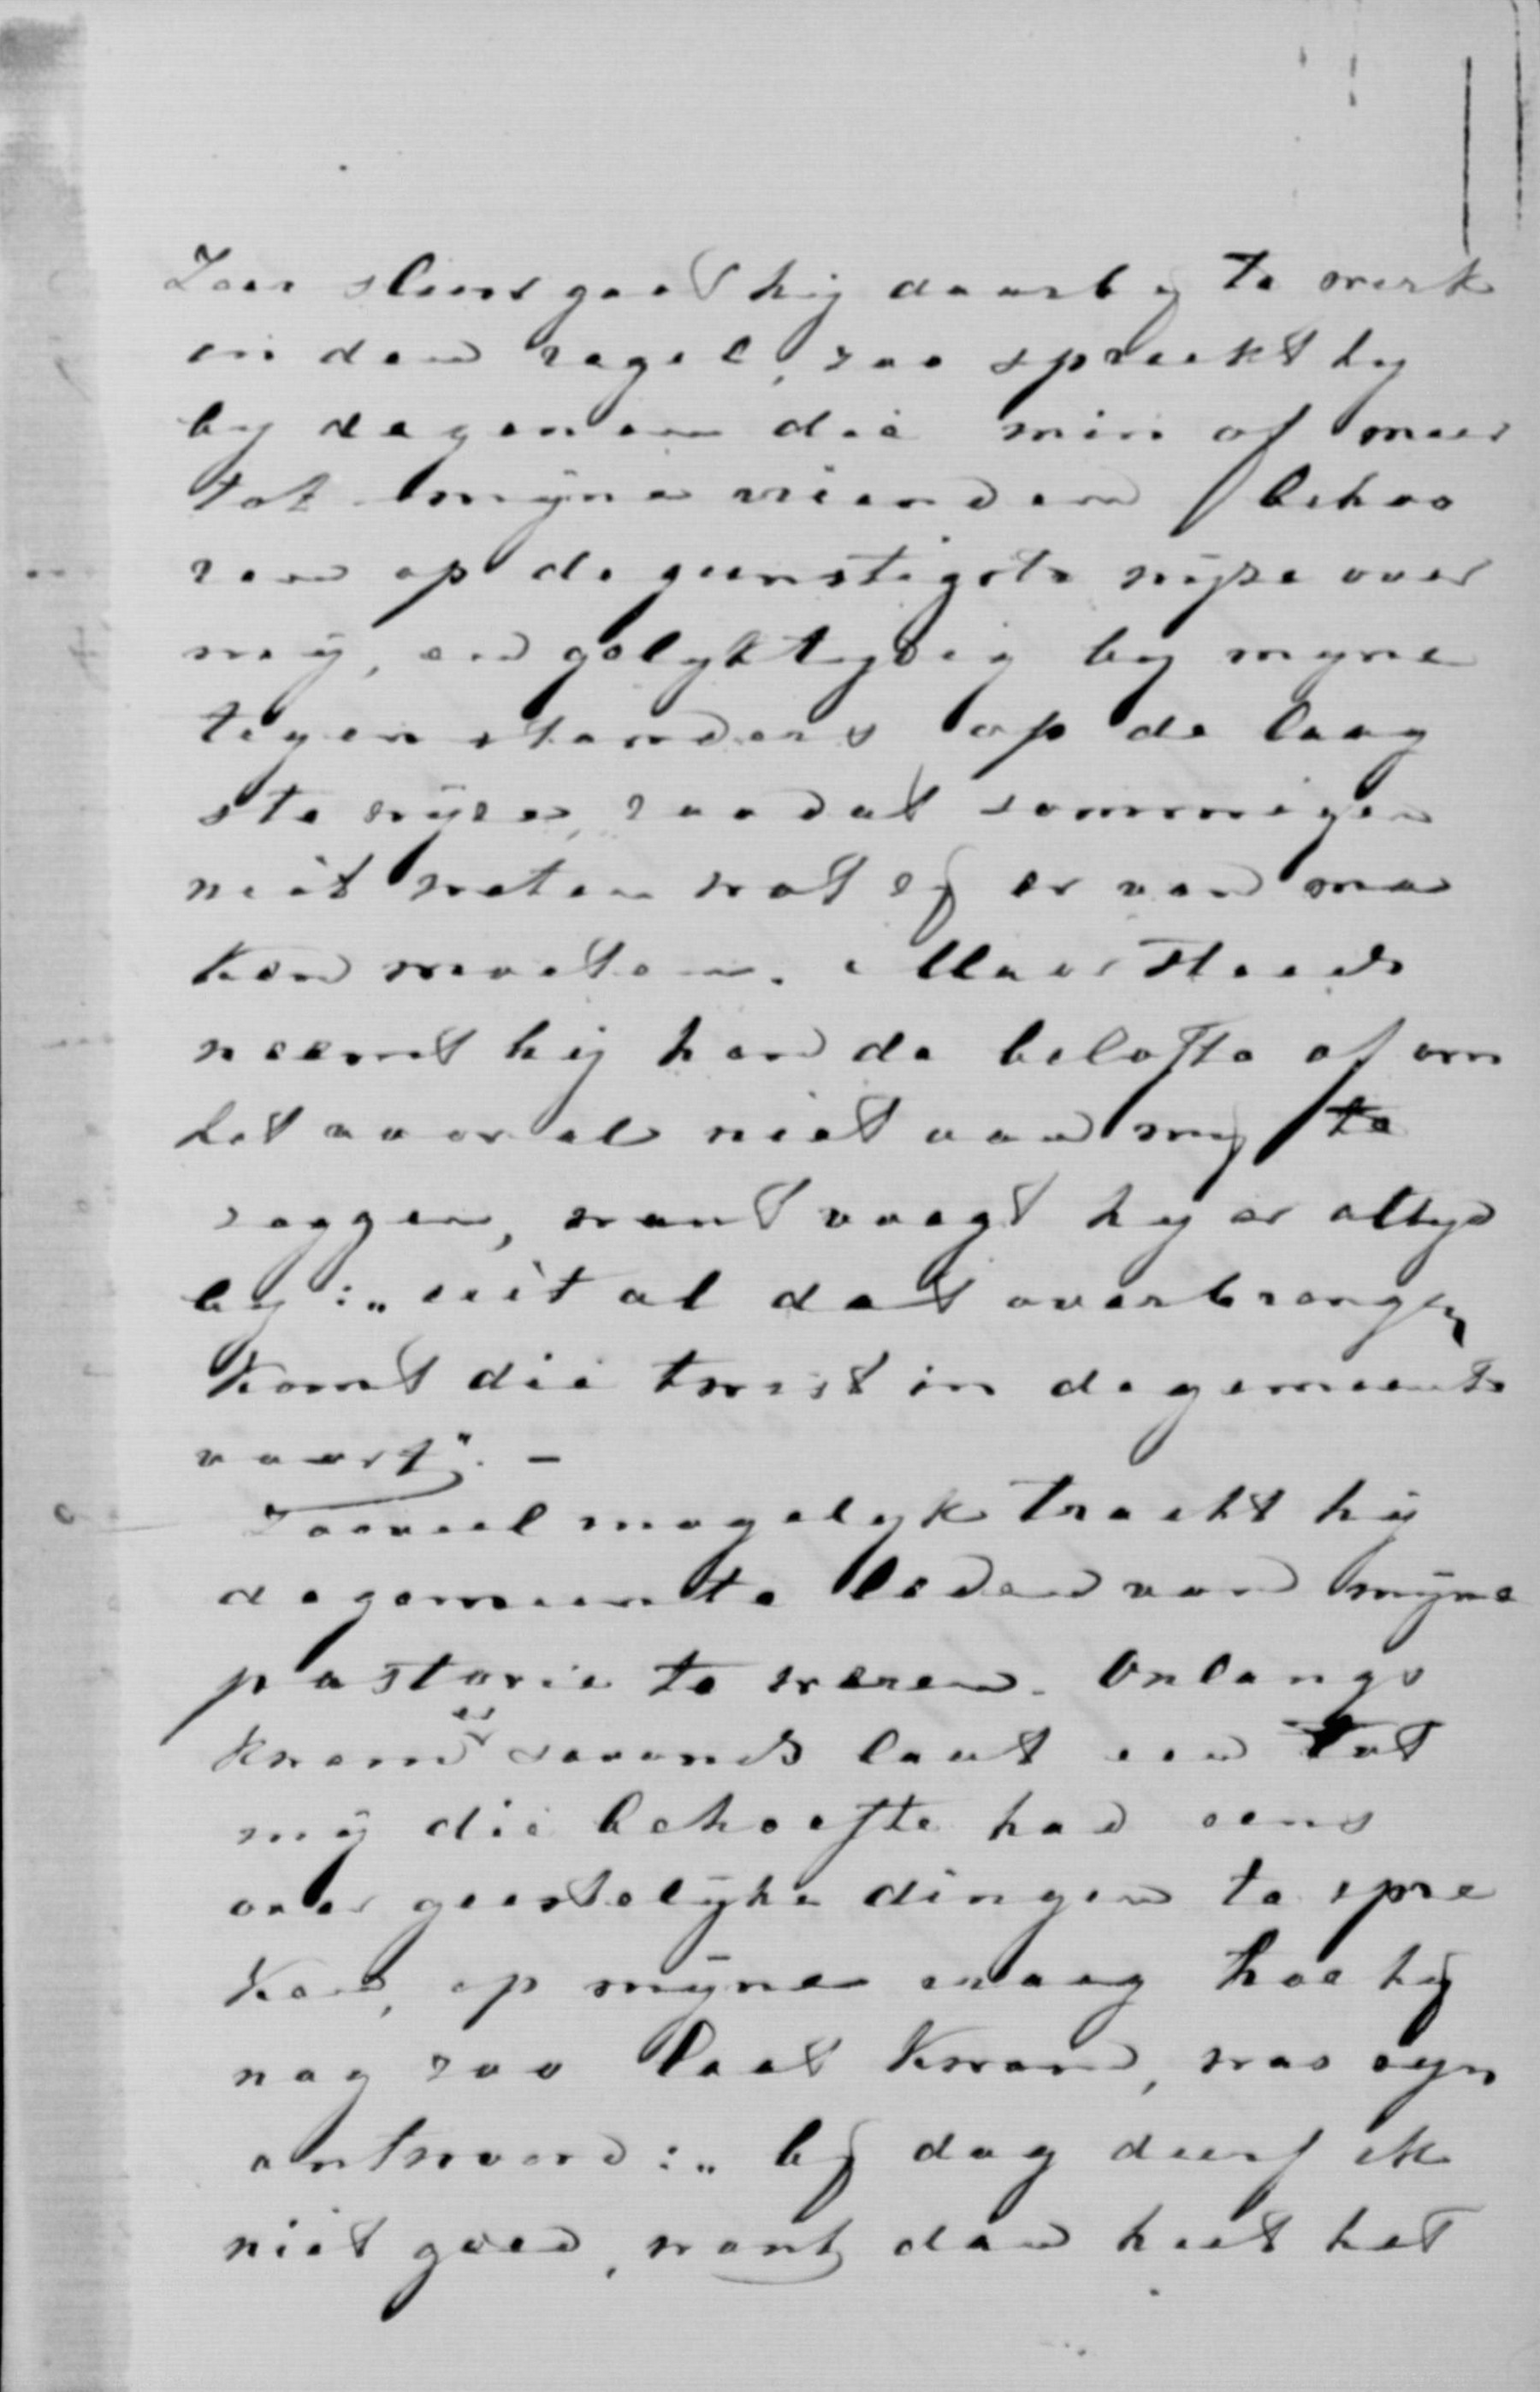 Zeer sluw gaat hij daarby te werk
in den regel, zoo spreekt hy
by degenen die min of meer
tot mijne vrienden behoo
ren op de gunstigste wijze over
mij, en gelyktydig by myne
tegenstanders op de laag
ste wijze, zoodat sommigen
niet weten wat zy er van ma
ken moeten. Maar steeds
neemt hij hen de belofte af om
het vooral niet aan my te
zeggen, want voegt hy er altyd
by: „uit al dat overbrengen
komt die twist in de gemeente
voort". –
Zooveel mogelyk tracht hij
de gemeente leden van mijne
pastorie te weren. Onlangs
kwam er savonds laat een tot
mij die behoefte had eens
over geestelijke dingen te spre
ken, op mijne vraag hoe hij
nog zoo laat kwam, was zyn
antwoord: „by dag durf ik
niet goed, want dan heet het